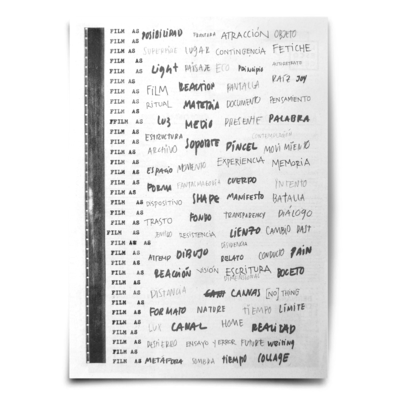 FILM AS POSIBILIDAD ATRACCIÓN OBJETO
FILM AS SUPERFICIE LUGAR CONTINGENCIA FETICHE
FILM AS Light PAISAJE ECO Principio
FILM AS FILM REACTION PANTALLA RAÍZ JOY
FILM AS RITUAL MATERIA DOCUMENTO PENSAMIENTO
FILM AS LUZ MEDIO PRESENTE PALABRA
FILM AS ESTRUCTURA
FILM AS ARCHIVO SOPORTE PINCEL MOVIMIENTO
FILM AS ESPACIO MOMENTO EXPERIENCIA MEMORIA
FILM AS FORMA CUERPO INTENTO
FILM AS DISPOSITIVO SHAPE MANIFESTO BATALLA
FILM AS TRASTO FONDO TRANSPARENCY DIÁLOGO
FILM AS RESISTENCIA LIENZO CAMBIO PAST
FILM AS DIBUJO RELATO CONDUCTO PAIN
FILM AS REACCIÓN VISIÓN ESCRITURA BOCETO
FILM AS DISTANCIA CANVAS [NO]THING
FILM AS FORMATO NATURE TIEMPO LÍMITE
FILM AS LUX CANAL HOME REALIDAD
FILM AS DESTIERRO ENSAYO Y ERROR FUTURE WRITING
FILM AS METÁFORA SOMBRA TIEMPO COLLAGE